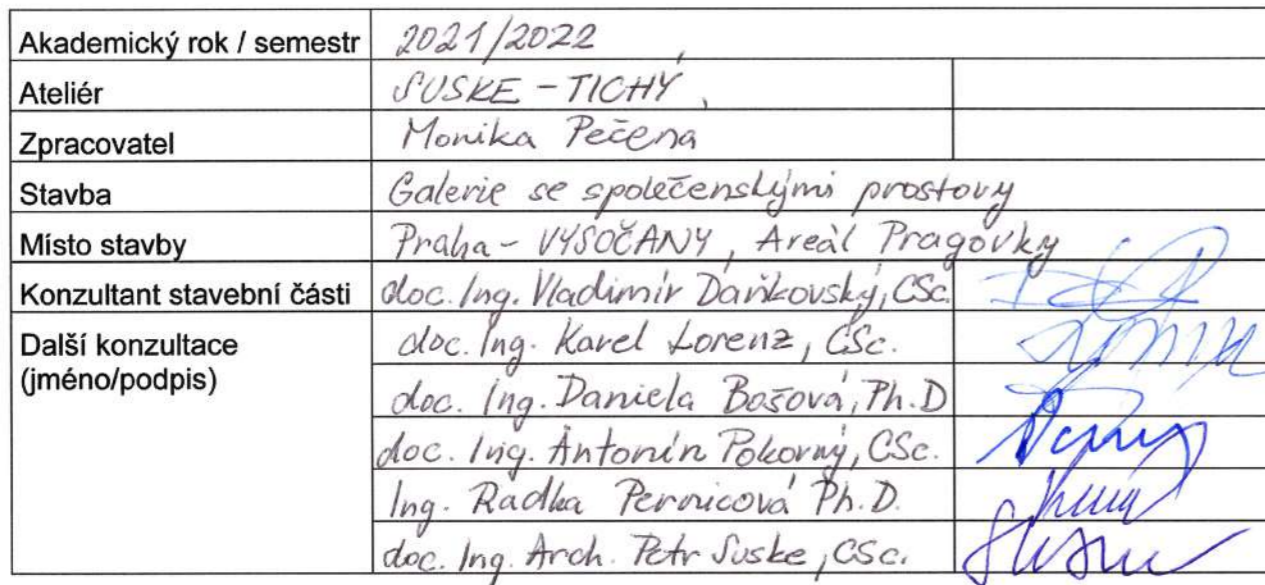 Akademický rok / semestr 2021/2022
Ateliér SUSKE - TICHÝ
Zpracovatel Monika Pečena
Stavba Galerie se společenskými prostory
Místo stavby Praha - VYSOČANY, Areál Pragovky
Konzultant stavební části doc. Ing. Vladimír Daňkovský, CSc.
Další konzultace doc. Ing. Karel Lorenz, CSc.
(jméno/podpis) doc. Ing. Daniela Bošová, Ph.D
doc. Ing. Antonín Pokorný, CSc.
Ing. Radka Pernicová Ph.D.
doc. Ing. Arch. Petr Suske, CSc.